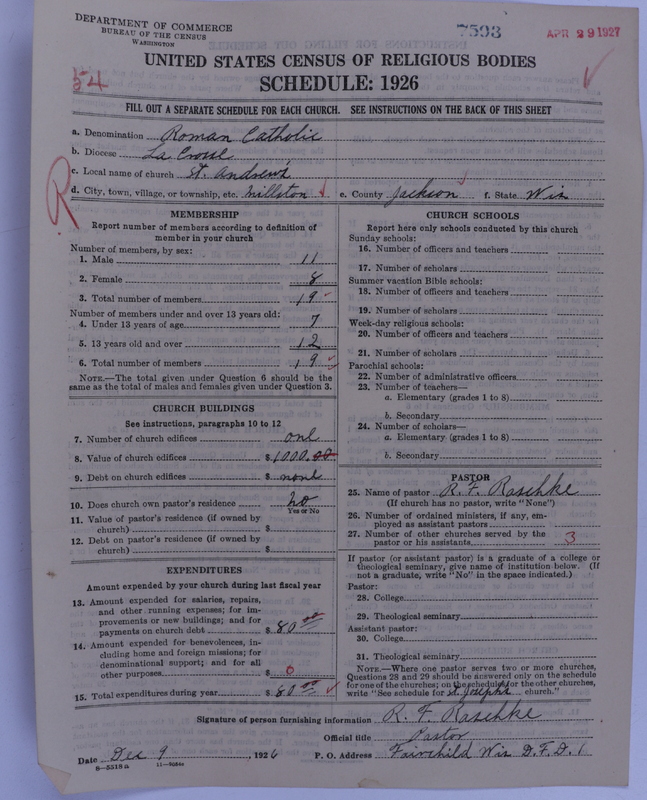 DEPARTMENT OF COMMERCE
BUREAU OF THE CENSUS
WASHINGTON
7593
APR 29 1927
54
UNITED STATES CENSUS OF RELIGIOUS BODIES
SCHEDULE: 1926
FILL OUT A SEPARATE SCHEDULE FOR EACH CHURCH. SEE INSTRUCTIONS ON THE BACK OF THIS SHEET
a. Denomination Roman Catholic
b. Diocese La Crosse
c. Local name of church St. Andrew's
d. City, town, village, or township, etc. Millston e. County Jackson f. State Wis
R
MEMBERSHIP
Report number of members according to definition of
member in your church
Number of members, by sex:
1. Male 11
2. Female 8
3. Total number of members 19
Number of members under and over 13 years old:
4. Under 13 years of age 7
5. 13 years old and over 12
6. Total number of members 19
NOTE.—The total given under Question 6 should be the
same as the total of males and females given under Question 3.
CHURCH BUILDINGS
See instructions, paragraphs 10 to 12
7. Number of church edifices one
8. Value of church edifices $ 1000.00
9. Debt on church edifices $ none
10. Does church own pastor's residence No
Yes or No
11. Value of pastor's residence (if owned by
church) $
12. Debt on pastor's residence (if owned by
church) $
EXPENDITURES
Amount expended by your church during last fiscal year
13. Amount expended for salaries, repairs,
and other running expenses; for im-
provements or new buildings; and for
payments on church debt $ 80 00
14. Amount expended for benevolences, in-
cluding home and foreign missions; for
denominational support; and for all
other purposes $ 0
15. Total expenditures during year $ 80 00
CHURCH SCHOOLS
Report here only schools conducted by this church
Sunday schools:
16. Number of officers and teachers
17. Number of scholars
Summer vacation Bible schools:
18. Number of officers and teachers
19. Number of scholars
Week-day religious schools:
20. Number of officers and teachers
21. Number of scholars
Parochial schools:
22. Number of administrative officers
23. Number of teachers—
a. Elementary (grades 1 to 8)
b. Secondary
24. Number of scholars—
a. Elementary (grades 1 to 8)
b. Secondary
PASTOR
25. Name of pastor R. F. Raschke
(If church has no pastor, write "None")
26. Number of ordained ministers, if any, em-
ployed as assistant pastors
27. Number of other churches served by the
pastor or his assistants 3
If pastor (or assistant pastor) is a graduate of a college or
theological seminary, give name of institution below. (If
not a graduate, write "No" in the space indicated.)
Pastor:
28. College
29. Theological seminary
Assistant pastor:
30. College
31. Theological seminary
NOTE.—Where one pastor serves two or more churches,
Questions 28 and 29 should be answered only on the schedule
for one of the churches; on the schedule for the other churches,
write "See schedule for St. Joseph's church."
Signature of person furnishing information R. F. Raschke
Official title Pastor
Date Dec 9, 1926 P. O. Address Fairchild Wis
8—5518 a